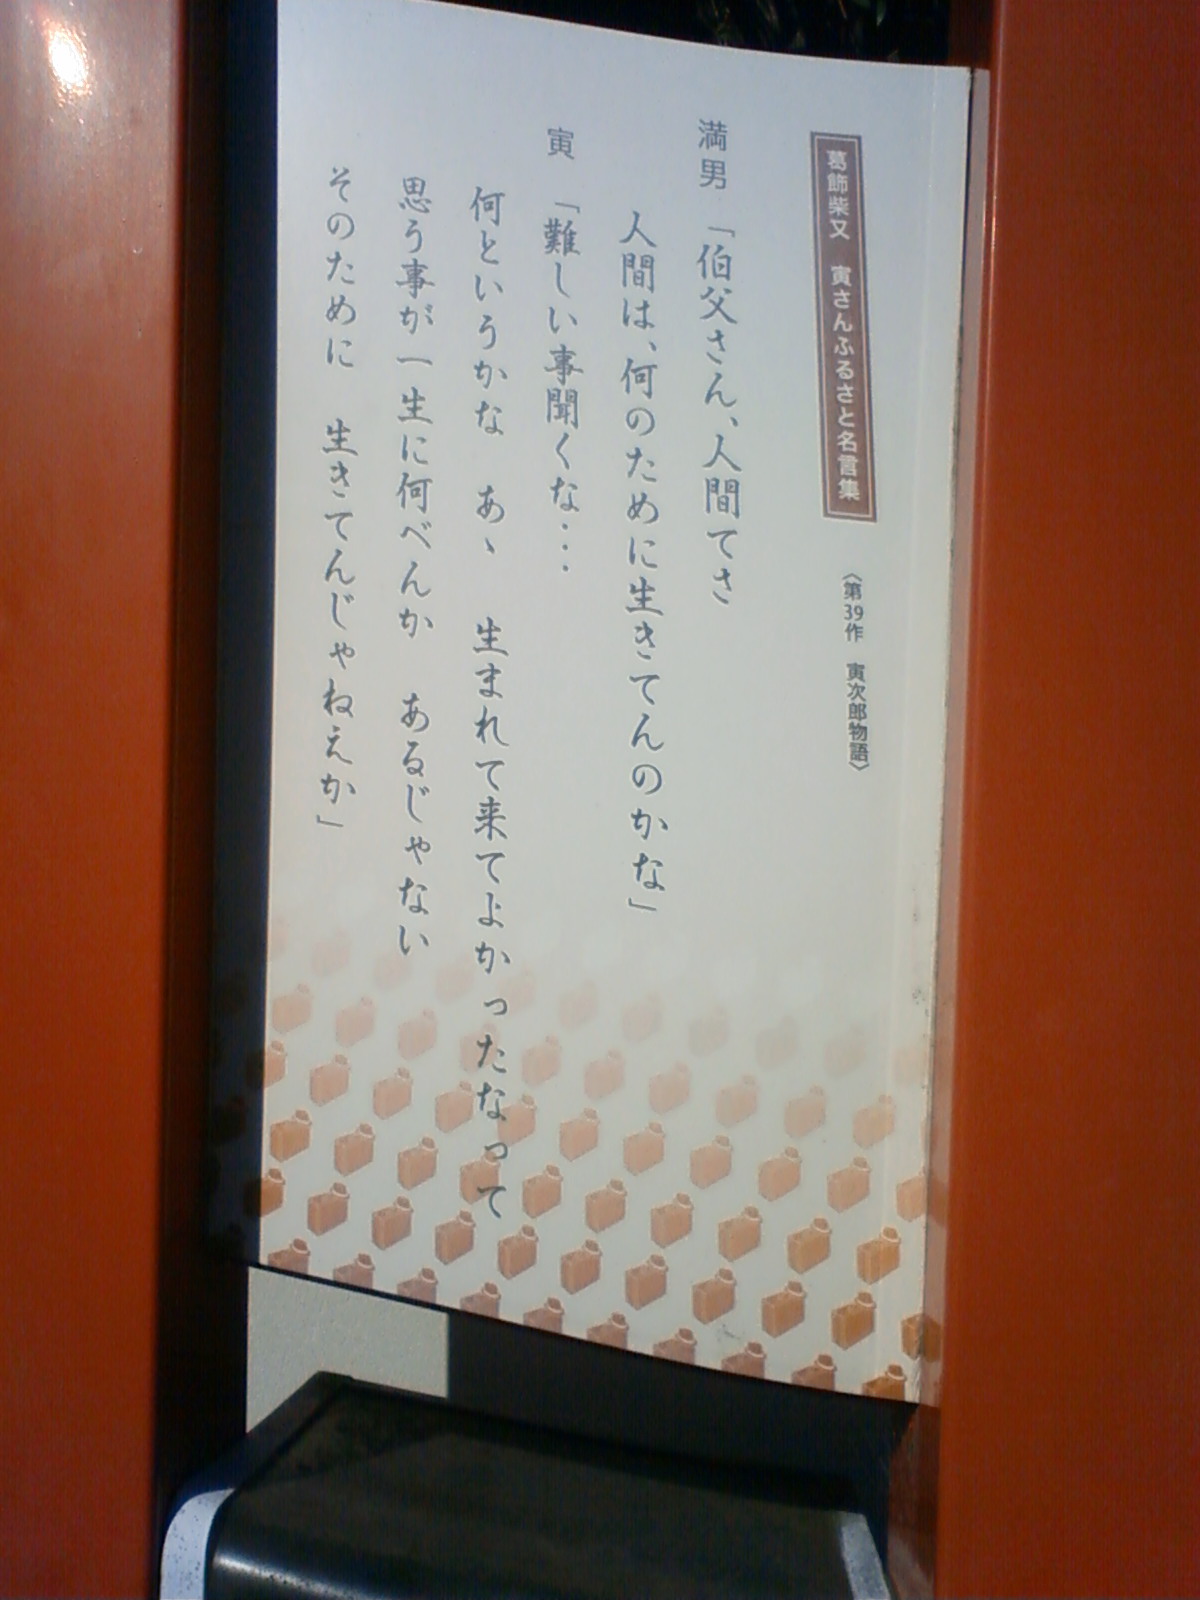 葛飾柴又 寅さんふるさと名言集
〈第39作 寅次郎物語〉
満男 「伯父さん、人間てさ
人間は、何のために生きてんのかな」
寅 「難しい事聞くな・・・
何というかな あゝ 生まれて来てよかったなって
思う事が一生に何べんか あるじゃない
そのために 生きてんじゃねえか」